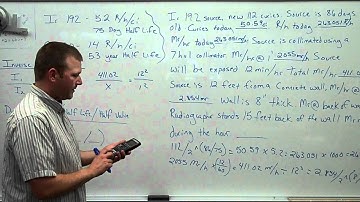 Ir 192 - 5.2 R/h/ci
75 Day Half Life
14 R/h/ci
5.3 year Half Life
Inverse
411.02 = 12²
X 1²
Half Life / Half Value
Ir 192 source, new 112 curies. Source is 86 days
old. Curies today 50.59 R/hr today 263.051
Mr/hr today 263051 Source is collimated using a
7 hvl collimator Mr/hr @ 1' 2055 mr/h
will be exposed 12 min/hr Total Mr/hr 411.02
Source is 12 feet from a Concrete wall, Mr/hr @
2.854 mr Wall is 8" thick Mr @ back of wall
Radiographer stands 15 feet back of the wall
during the hour
112/2^(86/75) = 50.59 x 5.2 = 263.051 x 1000 = 263051
2055 mr/h x (12/60) = 411.02 mr/h ÷ 12² = 2.854/2^(